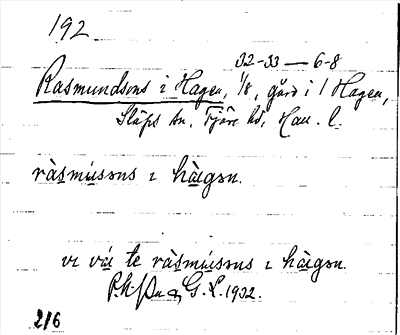 192
32-33 — 6-8
Rasmundsons i Hagen, 1/8, gård i / Hagen,
Släps sn, Fjäre hd, Hall. l.
ràsmúsɔns ɩ hàgɔn.
vɩ vá te ràsmúsɔns ɩ hàgɔn.
G. L. 1932.
216